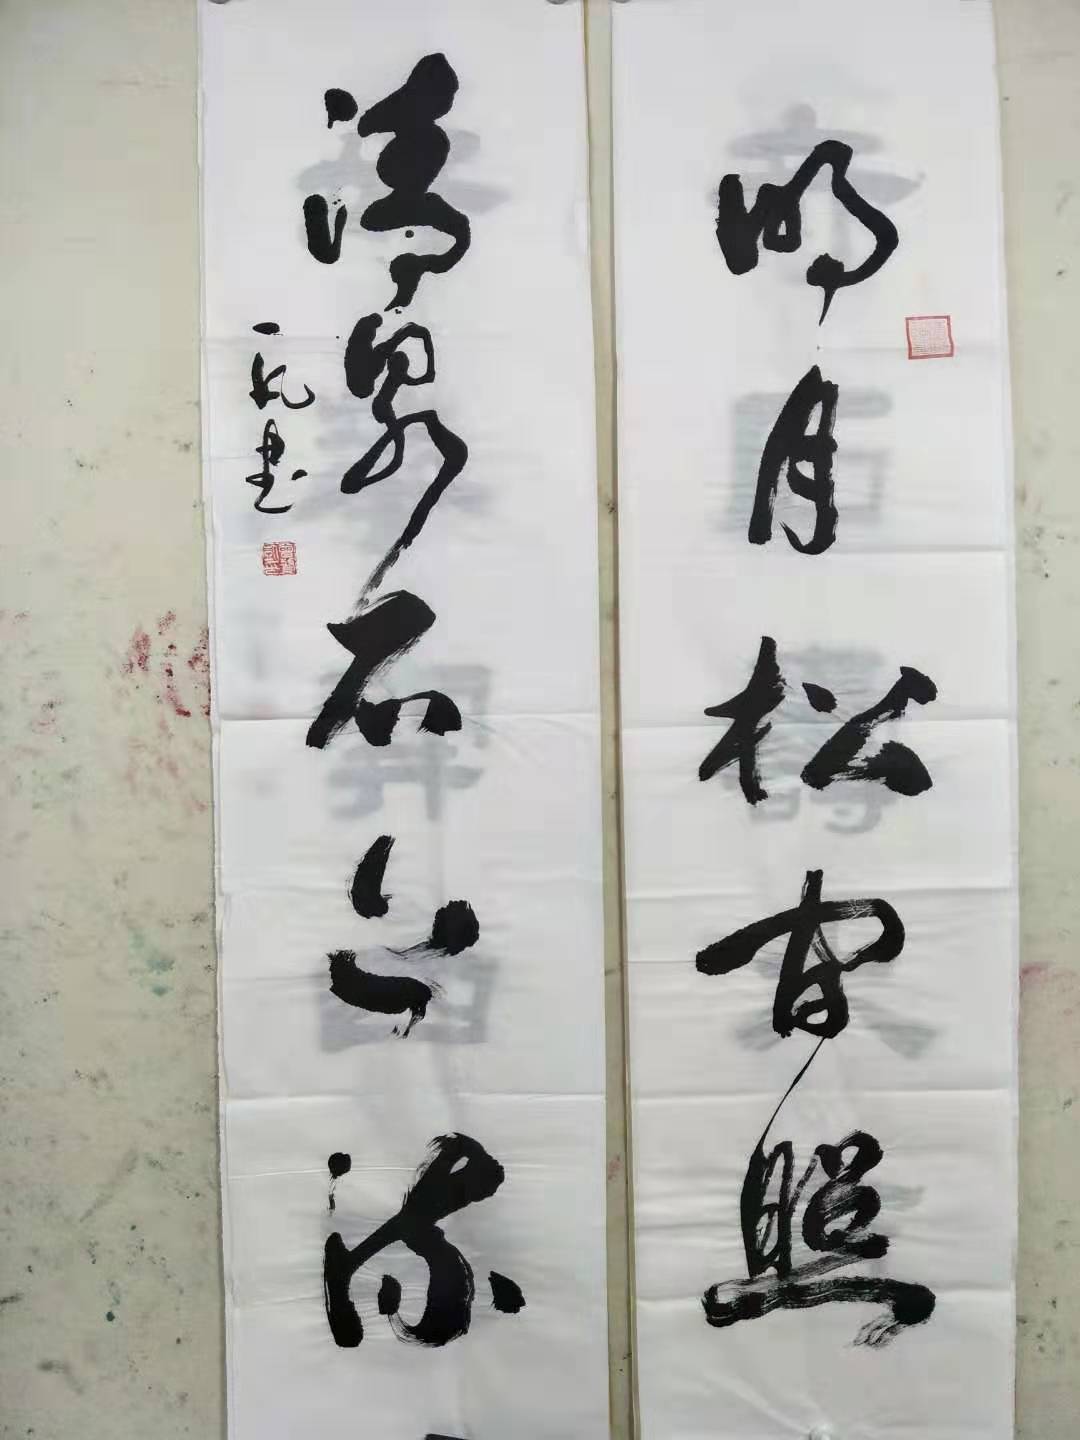 明月松间照
清泉石上流
一凡书